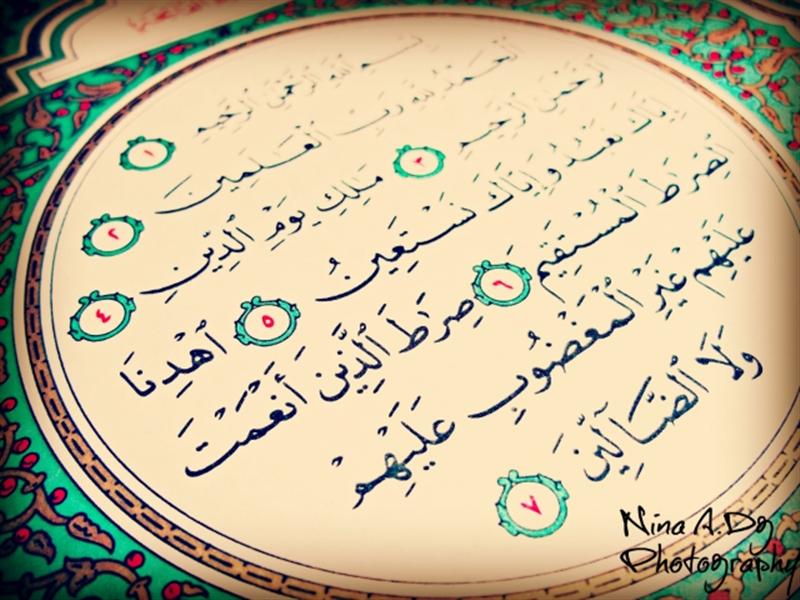 بِسْمِ ٱللَّهِ ٱلرَّحْمَٰنِ ٱلرَّحِيمِ ١
ٱلْحَمْدُ لِلَّهِ رَبِّ ٱلْعَٰلَمِينَ ٢
ٱلرَّحْمَٰنِ ٱلرَّحِيمِ ٣ مَٰلِكِ يَوْمِ ٱلدِّينِ ٤
إِيَّاكَ نَعْبُدُ وَإِيَّاكَ نَسْتَعِينُ ٥ ٱهْدِنَا
ٱلصِّرَٰطَ ٱلْمُسْتَقِيمَ ٦ صِرَٰطَ ٱلَّذِينَ أَنْعَمْتَ
عَلَيْهِمْ غَيْرِ ٱلْمَغْضُوبِ عَلَيْهِمْ
وَلَا ٱلضَّآلِّينَ ٧
Nina A.Dg
Photography